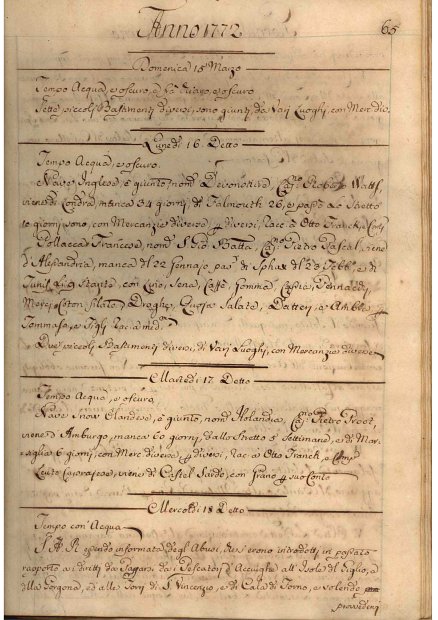 Anno 1772
65
Domenica 15 Marzo
Tempo Acqua, e oscuro, e
Sette piccoli Bastimenti diversi, sono giunti, da Varj Luoghi, con Merc. div.
Lunedi 16. Detto
Tempo Acqua, e oscuro.
Nave Inglese è giunto, nom. Devonshire, Cap. Roberto Watts,
viene di Londra, manca 34 giorni, di Falmouth 26, e passò lo Stretto
10 giorni sono, con Mercanzie diverse diversi, rac. a Otto Franck, e Comp.
Pollacca Francese, nom. S. Gio. Batta, Cap. Pietro Pascal, viene
d'Alessandria, manca dl. 22 Gennajo, dl. 23 Febb. e di
Tunis, con Cuio, Sena, Caffè, Gomma, Cassia,
Coton filato, Droghe, Quoja Salate, Datteri, e
Tommaso, e Figlj rac. a med.
Due piccoli Bastimenti diversi, di Varj Luoghi, con Mercanzie diverse
Martedi 17. Detto
Tempo Acqua, e oscuro
Nave Olandese, è giunto, nom. Holandia, Cap. Pietro Proost,
viene d'Amburgo, manca 60 giorni, dallo Stretto 5 Settimane, e di Mar-
siglia 6 giorni, con Merc. diverse diversi, rac. a Otto Franck, e Comp.
Leuto Caprajese, viene di Castel Sardo, con Grano suo Conto
Mercoldi 18 Detto
Tempo con Acqua
S. A. R. essendo informata degli Abusi, che si erono introdotti in passato
rapporto a i diritti da Pagarsi da i Pescatori d'Acciughe all'Isole di Giglio, e
alla Gorgona, ed alle Torri di S. Vincenzio, e di Cala di Forno, e volendo
provedervi